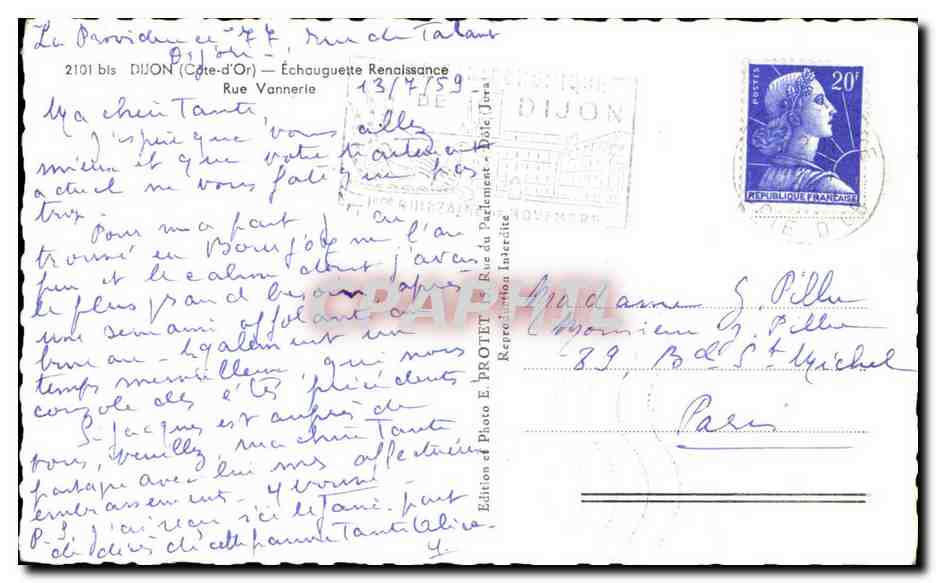 La Providence 77, rue de Talant
Dijon
2101 bis DIJON (Côte-d'Or) — Échauguette Renaissance
Rue Vannerie
13/7/59
Ma chère Tante,
J'espère que vous allez
mieux et que votre traitement
actuel ne vous fatigue pas
trop.
Pour ma part j'ai
trouvé en Bourgogne l'air
pur et le calme dont j'avais
le plus grand besoin après
une semaine affolante au
bureau - Egalement un
temps merveilleux, qui nous
console des étés précédents
Si Jacques est auprès de
vous, veuillez, ma chère Tante
partager avec lui mes affectueux
embrassements - Yvonne
P.S. J'ai reçu ici le faire-part
de décès de cette pauvre Tante
Y.
Edition et Photo E. PROTET - Rue du Parlement - Dôle (Jura)
Reproduction Interdite
DE DIJON
NOVEMBRE
POSTES
20F
REPUBLIQUE FRANÇAISE
CPARAMA
Madame G. Pillu
Monsieur J. Pillu
89, Bd St Michel
Paris